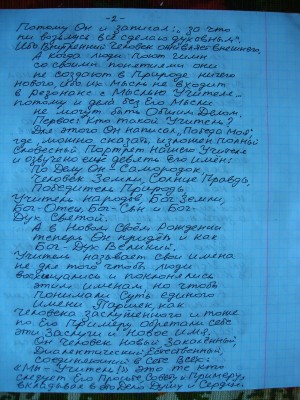 -2-
Потому Он и записал: „за что
ни возьмусь всё сделаю духовным".
Ибо Внутренний Человек одевался внешним.
А когда люди поют Гимн
со своими понятиями они
не создают в Природе ничего
нового, ибо их Мысль не входит
в резонанс с Мыслью Учителя...
потому и дела без Его Мысли
не могут быть Общим Делом.
Первое: Кто такой Учитель?
Для этого Он написал „Победа Моя",
где можно сказать изложен полный
словесный Портрет Нашего Учителя
и озвучено ещё девять Его имён:
По Делу Он - Самородок,
Человек Земли, Солнце Правда,
Победитель Природы,
Учитель Народов, Бог Земли,
Бог-Отец, Бог-Сын и Бог-
Дух Святой.
А в Новом Своём Рождении
теперь Он придёт и как
Бог-Дух Великий.
Учитель называет свои имена
не для того чтобы люди
восхищались и поклонялись
этим именам но чтобы
понимали Суть единого
Имени „Паршек" как
Человека заслуженного и тоже
по Его Примеру обретали себе
эти Заслуги и Новое Имя.
Он Человек Новый, Закалённый,
Диалектический, Естественный,
соединяющий в Себе Всех:
«Мы - Учитель!» это те кто
следует Его Просьбе, Совету и Примеру,
вкладывая в это Дело Душу и Сердце.